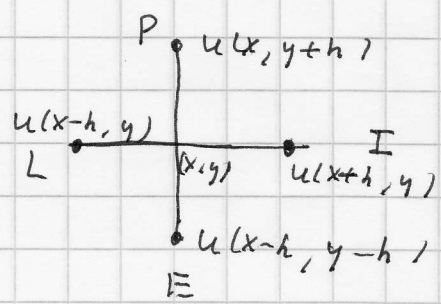 P u(x, y+h)
u(x-h, y)
L (x,y) u(x+h, y) I
u(x-h, y-h)
E